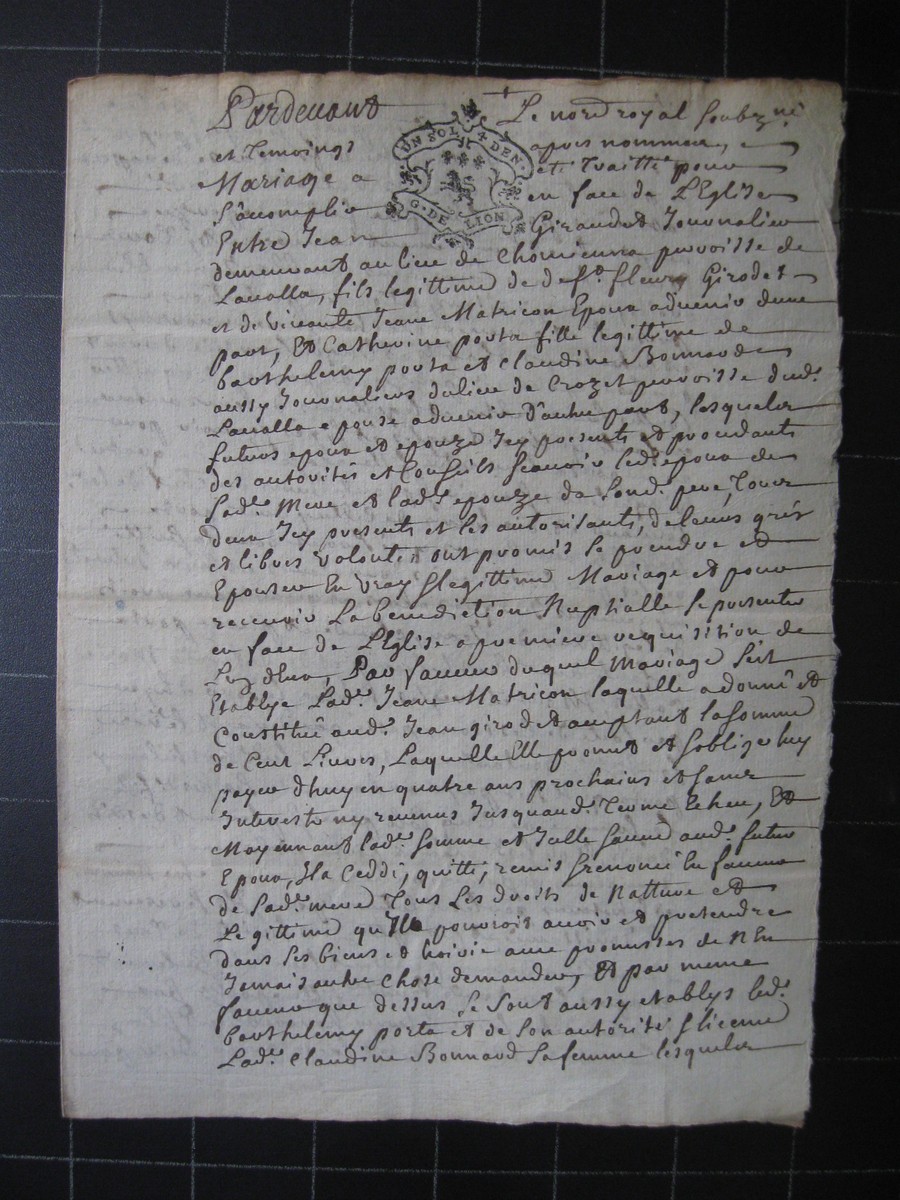 Pardevant Le nore royal soubzne
et temoings apres nommez, a
Mariage a eté traitté pour
s'acomplir en face de L'Eglise
UN SOL 4 DEN.
G. DE LION
Entre Jean Giraudet Journalier
demeurant au lieu de Chomienna parroisse de
Lavalla, fils legittime de deft. fleury Girodet
et de vivante Jeane Matricon Epoux advenir dune
part, Et Catherine porta fille legittime de
barthelemy porta et Claudine Bonnard
aussy Journaliers du lieu de Crozet parroisse dud.
Lavalla epouse advenir d'autre part, lesquels
futurs epoux et epouze Icy presents et procedants
des autorités et Conseils scavoir led. epoux de
Sad. Mere et lad. epouze de Sond. pere, tous
deux Icy presents et les autorisants, de leurs grés
et libres volontés ont promis se prendre et
Epouser En vray & legittime Mariage et pour
recevoir La benediction Nuptialle se presenter
en face de L'Eglise a premiere requisition de
Luy d'eux, Par faveur duquel Mariage s'est
Etablye Lad. Jeane Matricon laquelle a donné et
Constitué aud. Jean girodet acceptant la somme
de Cent Livres, Laquelle Elle promet et s'oblige luy
payer d'huy en quatre ans prochains et sans
Interest ny revenus Jusquaud. terme Echeu, Et
Moyennant lad. somme et Icelle payée aud. futur
Epoux, Il a Ceddé, quitté, remis & renoncé En faveur
de Sad. mere Tous Les droits de Natture et
Legittime qu'Il pouvoit avoir et pretendre
dans ses biens et hoirie avec promesses de n'En
Jamais autre Chose demander, Et par meme
faveur que dessus se sont aussy etablys led.
barthelemy porta et de Son autorité & licence
Lad. Claudine Bonnard sa femme lesquels